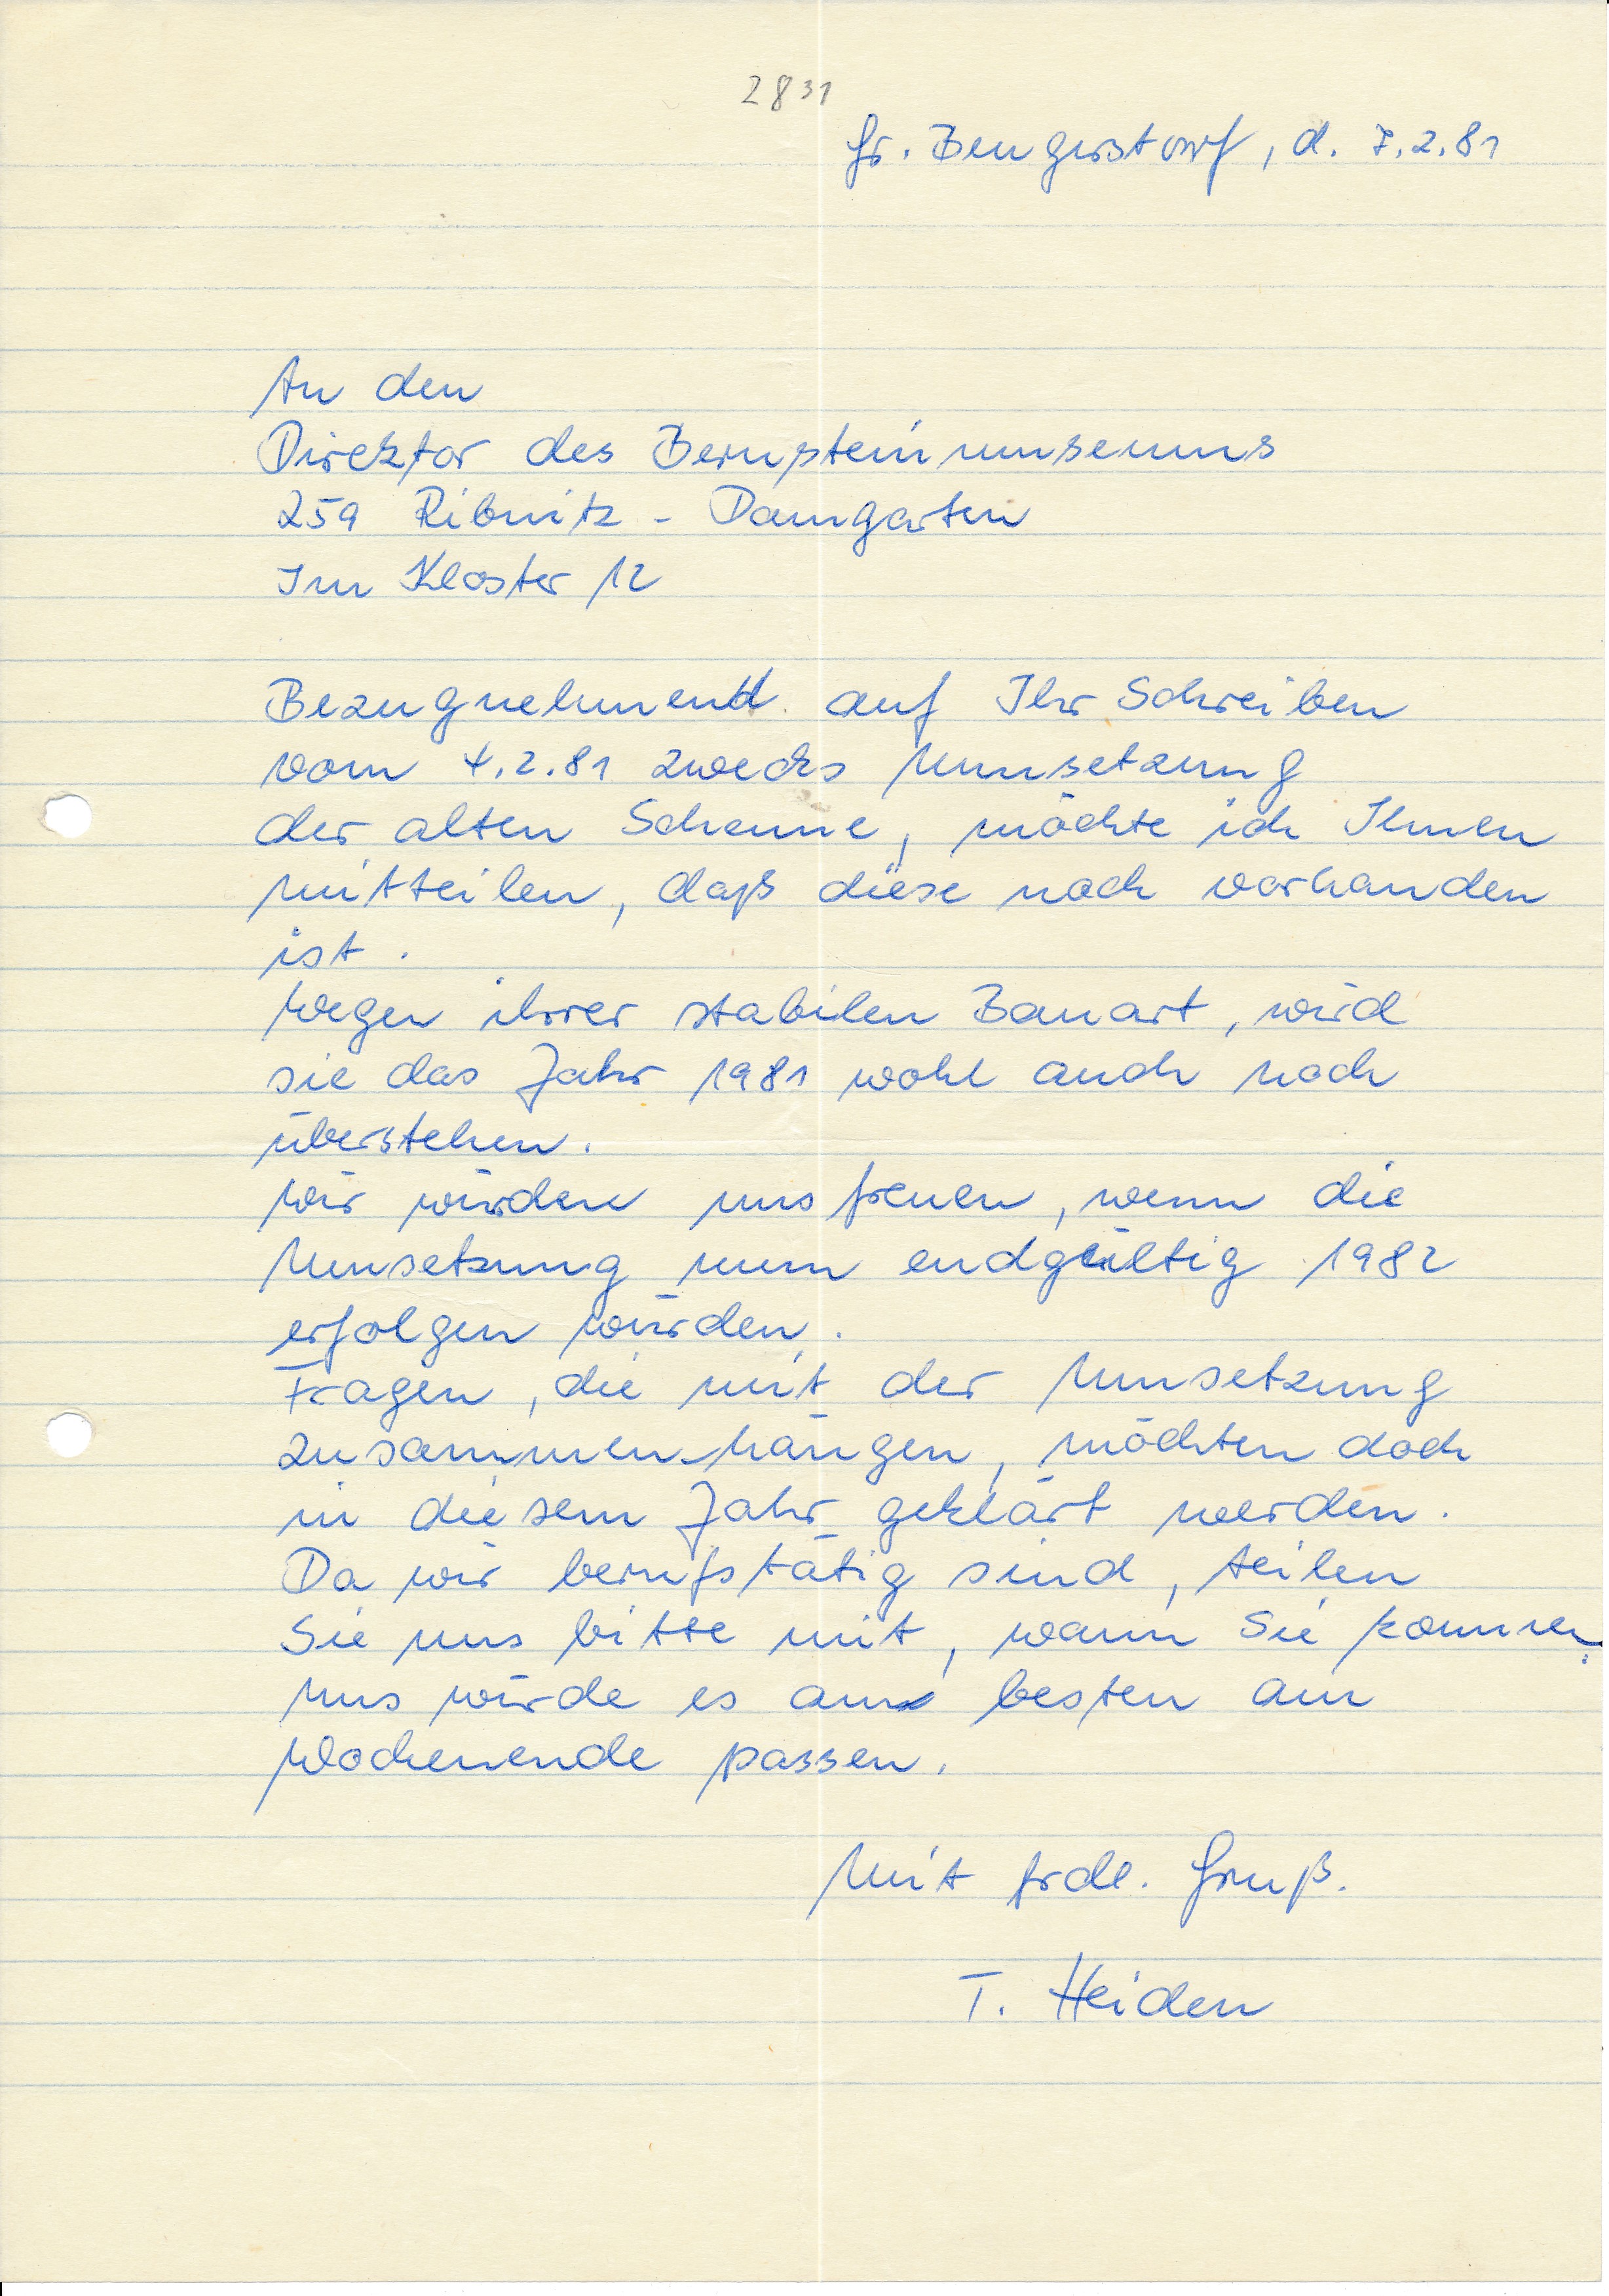 2831
Gr. Bengerstorf, d. 7.2.81
An den
Direktor des Bernsteinmuseums
259 Ribnitz - Damgarten
Im Kloster 12
Bezugnehmend auf Ihr Schreiben
vom 4.2.81 zwecks Umsetzung
der alten Scheune, möchte ich Ihnen
mitteilen, daß diese noch vorhanden
ist.
Wegen ihrer stabilen Bauart, wird
sie das Jahr 1981 wohl auch noch
überstehen.
Wir würden uns freuen, wenn die
Umsetzung nun endgültig 1982
erfolgen würden.
Fragen, die mit der Umsetzung
zusammenhängen, möchten doch
in diesem Jahr geklärt werden.
Da wir berufstätig sind, teilen
Sie uns bitte mit, wann Sie kommen.
Uns würde es am besten am
Wochenende passen.
Mit frdl. Gruß.
T. Heiden